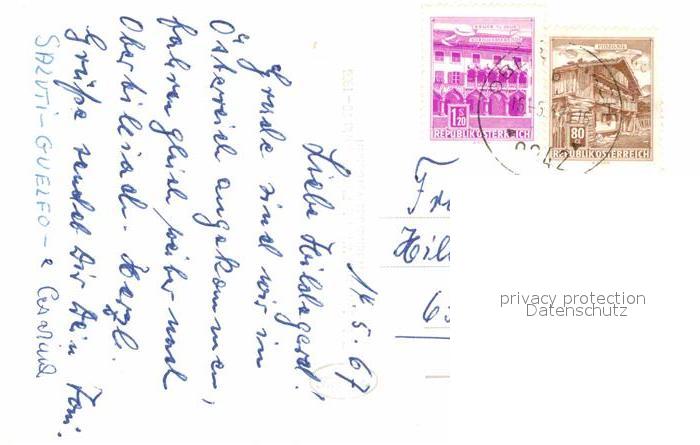 14.5.67
Liebe Hildegard!
Grade sind wir in
Österreich angekommen,
fahren gleich weiter nach
Obertilliach. Herzl.
Grüße sendet Dir Dein Toni.
SALUTI - GUELFO - e
Fr
Hil
63
1.20
REPUBLIK ÖSTERREICH
PINZGAU
80
REPUBLIK ÖSTERREICH
9942
privacy protection
Datenschutz